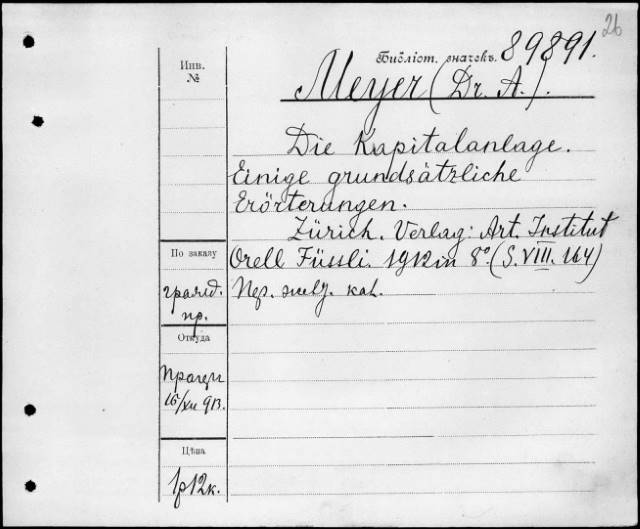 26
Инв. №
Библіот. значекъ. 89891.
Meyer (Dr. A.).
Die Kapitalanlage.
Einige grundsätzliche
Erörterungen.
Zürich. Verlag: Art. Institut
Orell Füssli. 1912 in 8º. (S. VIII. 164)
По заказу
гражд.
пр.
Пер. кал.
Откуда
16/XII 913.
Цѣна
1р12к.